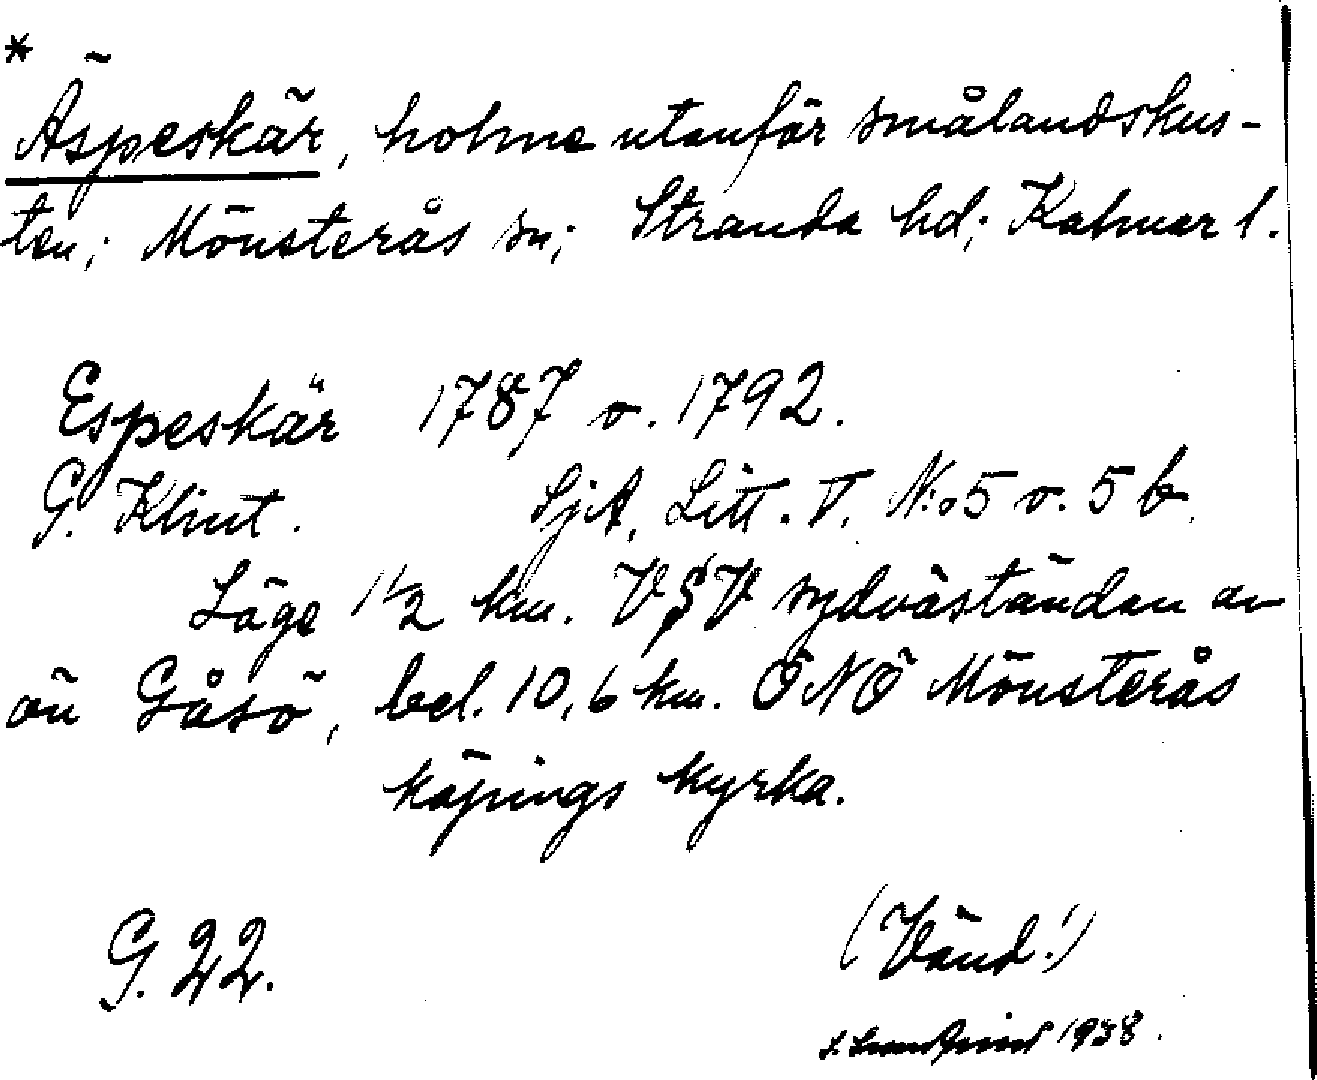 *
Äspeskär, holme utanför smålandskus-
ten; Mönsterås sn; Stranda hd; Kalmar l.
Espeskär 1787 o. 1792.
G. Klint. SjA, Litt. V. N:o 5 o. 5 b.
Läge 1 1/2 km. VSV sydväständan av
ön Gåsö, bel. 10,6 km. ONO Mönsterås
köpings kyrka.
G. 22.
(Vänd!)
1938.